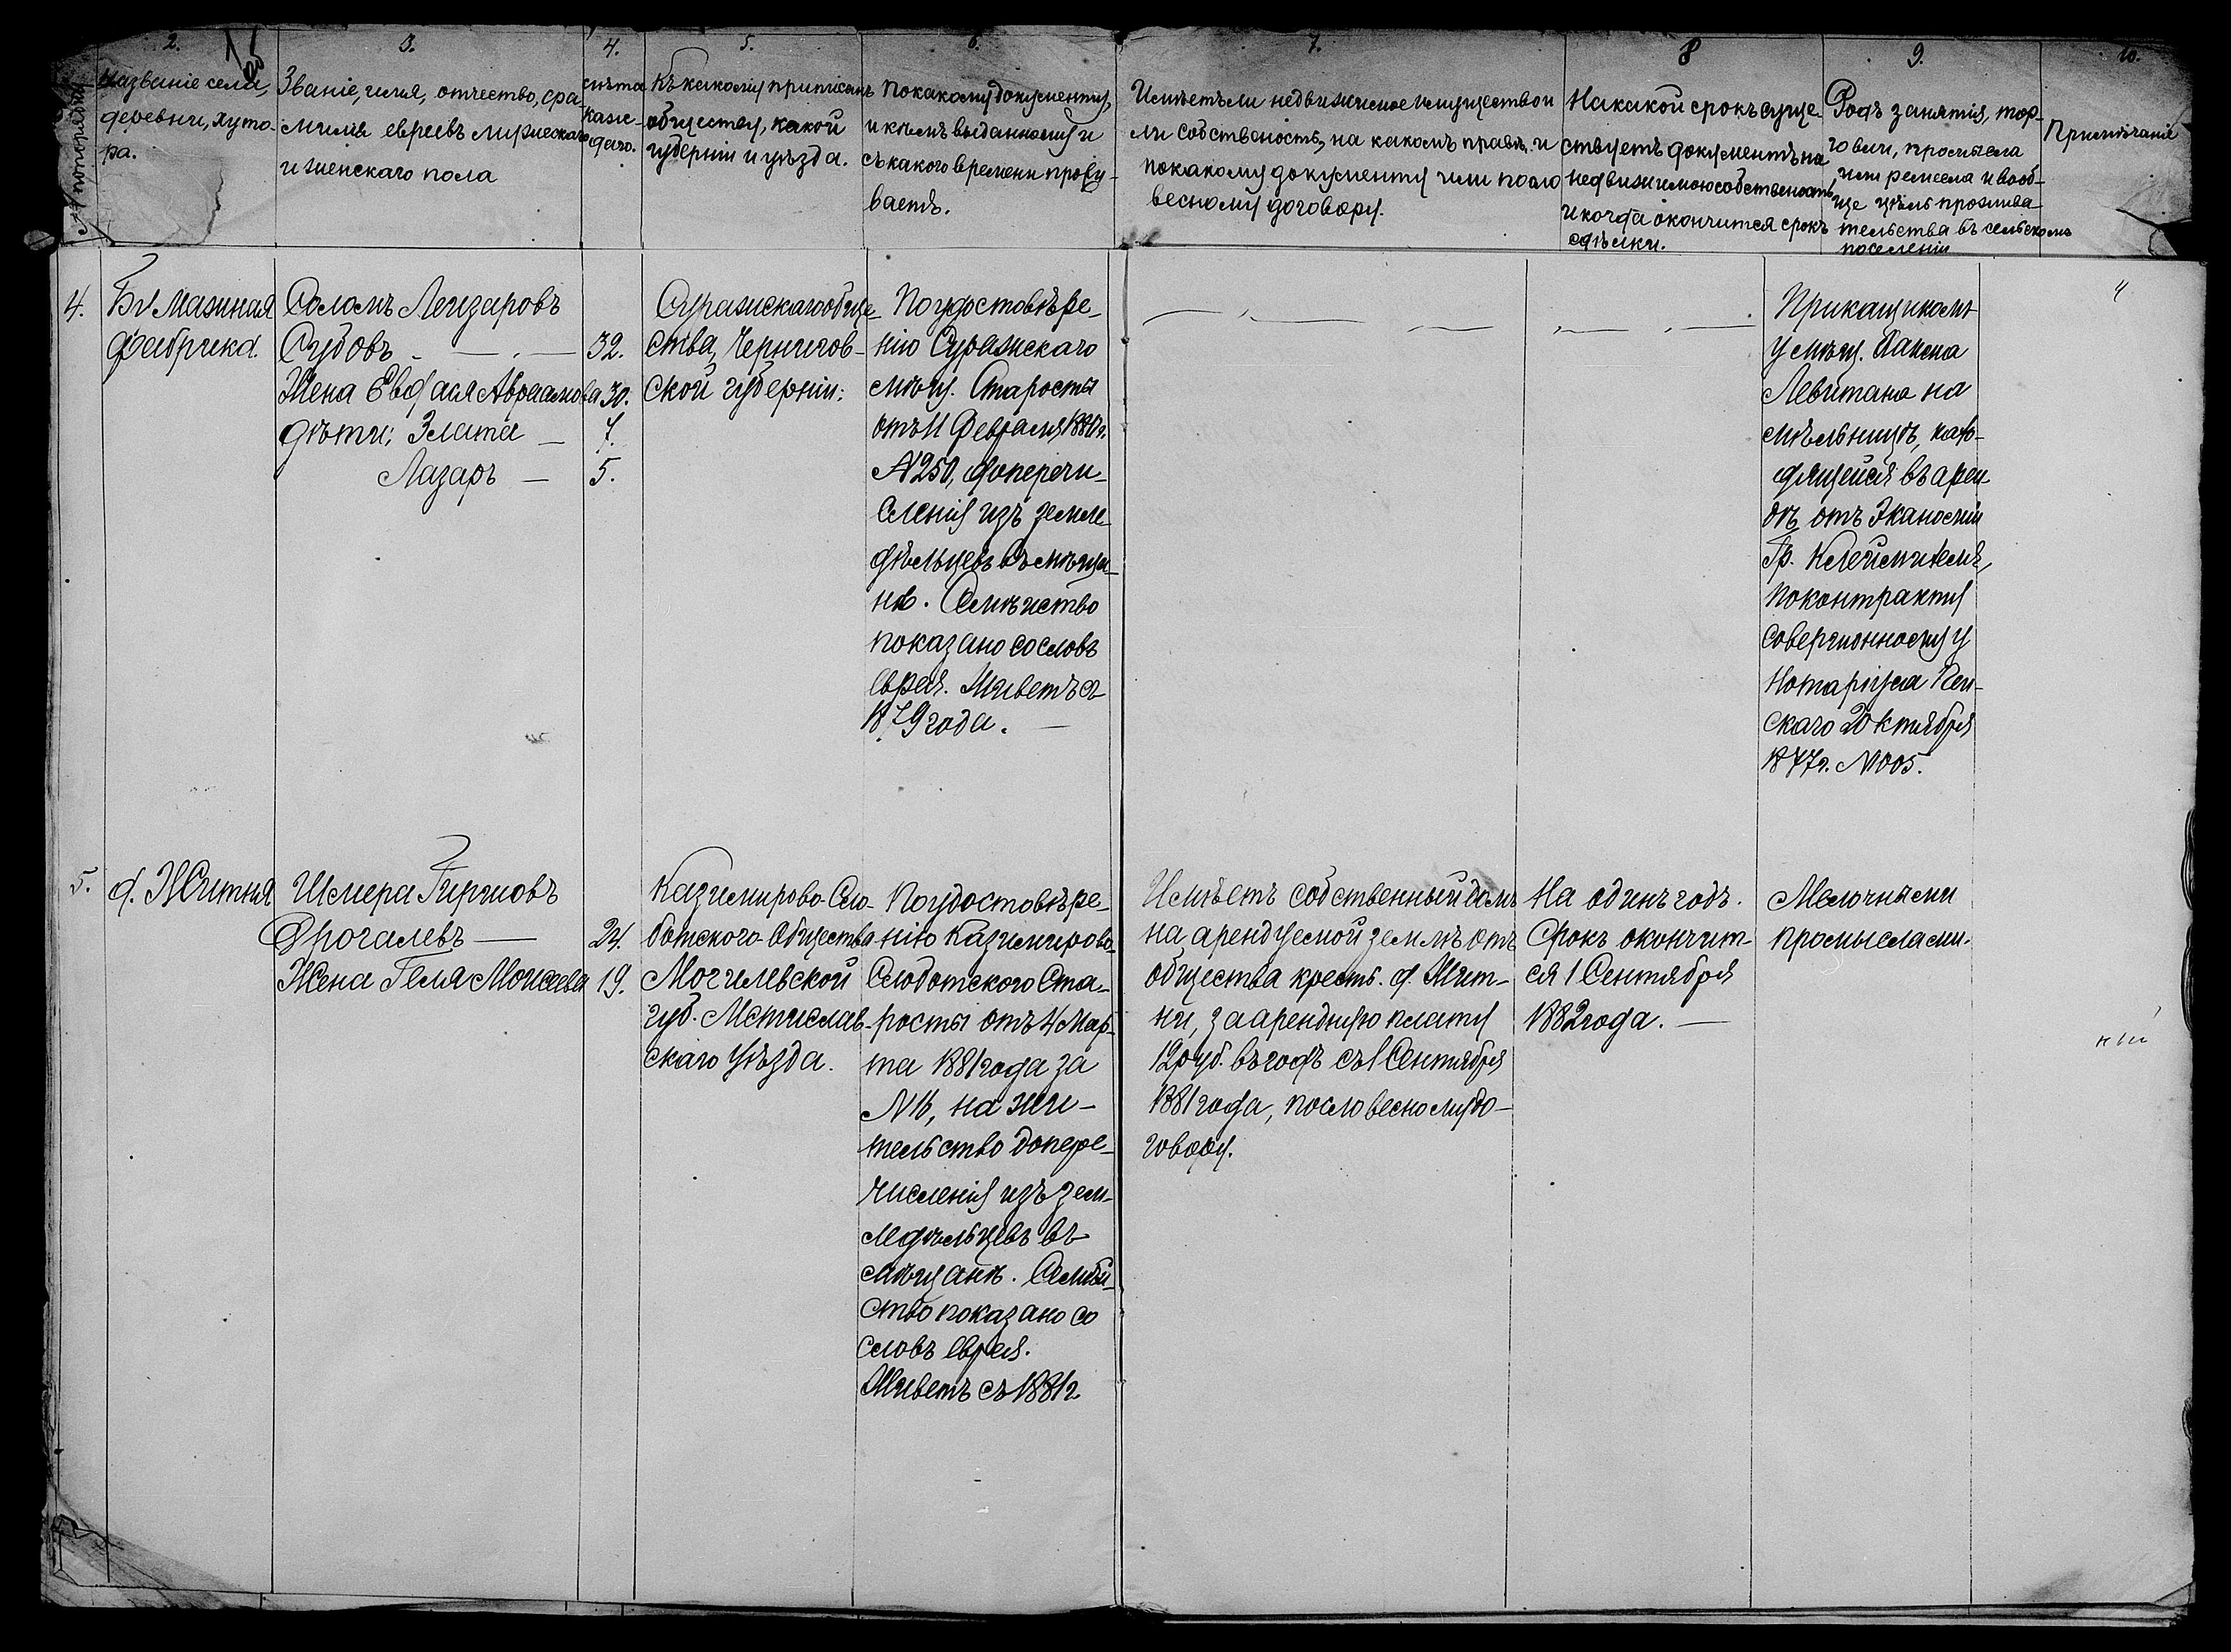 2.
3.
4.
5.
6.
7.
8
9.
10.
№ попорядку
Названіе села,
деревни, хуто-
ра.
Званіе, имя, отчество, фа-
милія евреевъ мужескаго
и женскаго пола
лѣта
каж-
даго.
Къ какому приписанъ
обществу, какой
губерніи и уѣзда.
По какому документу,
и кѣмъ выданному и
съ какого времени прожи-
ваетъ.
Имѣетъ ли недвижимое имущество и
ли собственость, на какомъ правѣ и
по какому документу или по сло
весному договору.
На какой срокъ суще-
ствуетъ документъ на
недвижимою собственость
и когда окончится срокъ
сдѣлки.
Родъ занятія, тор-
говли, промысла
или ремесла и вооб-
ще цѣль прожива-
тельства въ сельскомъ
поселеніи
Примѣчаніе
4.
Бумажная
фабрика.
Соломъ Леизаровъ
Судовъ - — . — 32.
Жена Евфася Авраамова 30.
дѣти: Злата — 7.
Лазаръ — 5.
Суражскаго обще-
ства, Чернигов-
ской губерніи:
По удостовѣре-
нію Суражскаго
мѣщ. Старосты
отъ 11 Февраля 1880 г.
№ 250, до перечи-
сленія изъ земле-
дѣльцевъ въ мѣща-
нѣ. Семѣйство
показано со словъ
еврея. Живетъ съ
1879 года. —
Прикащикомъ
у мѣщ.
Левитана на
мѣльницѣ, нахо-
дящейся въ арен-
дѣ отъ Эканоміи
Гр. Клейнмихель,
по контракту
совершонному у
Нотаріуса
скаго 20 ктября
1877 г. №
4
5.
д. Житня
Шмера Гиршовъ
Дрогалевъ — 24.
Жена Геля Моисеева 19.
Казимирово-Сло-
ботского Общества
Могилевской
губ. Мстислав-
скаго Уѣзда.
По удостовѣре-
нію Казимирово-
Слоботского Ста-
росты отъ 4 Мар-
та 1881 года за
№ 16, на жи-
тельство до пере-
численія изъ зем-
ледѣльцевъ въ
мѣщанѣ. Семѣй-
ство показано со
словъ еврея.
Живетъ съ 1881 г
Имѣетъ собственный домъ
на арендуемой землѣ отъ
общества крест. д. Жит-
ни, за арендную плату
12 руб. въ годъ съ 1 Сентября
1881 года, по словесному до-
говору.
На одинъ годъ.
Срокъ окончит-
ся 1 Сентября
1882 года. —
Мелочными
промыслами.